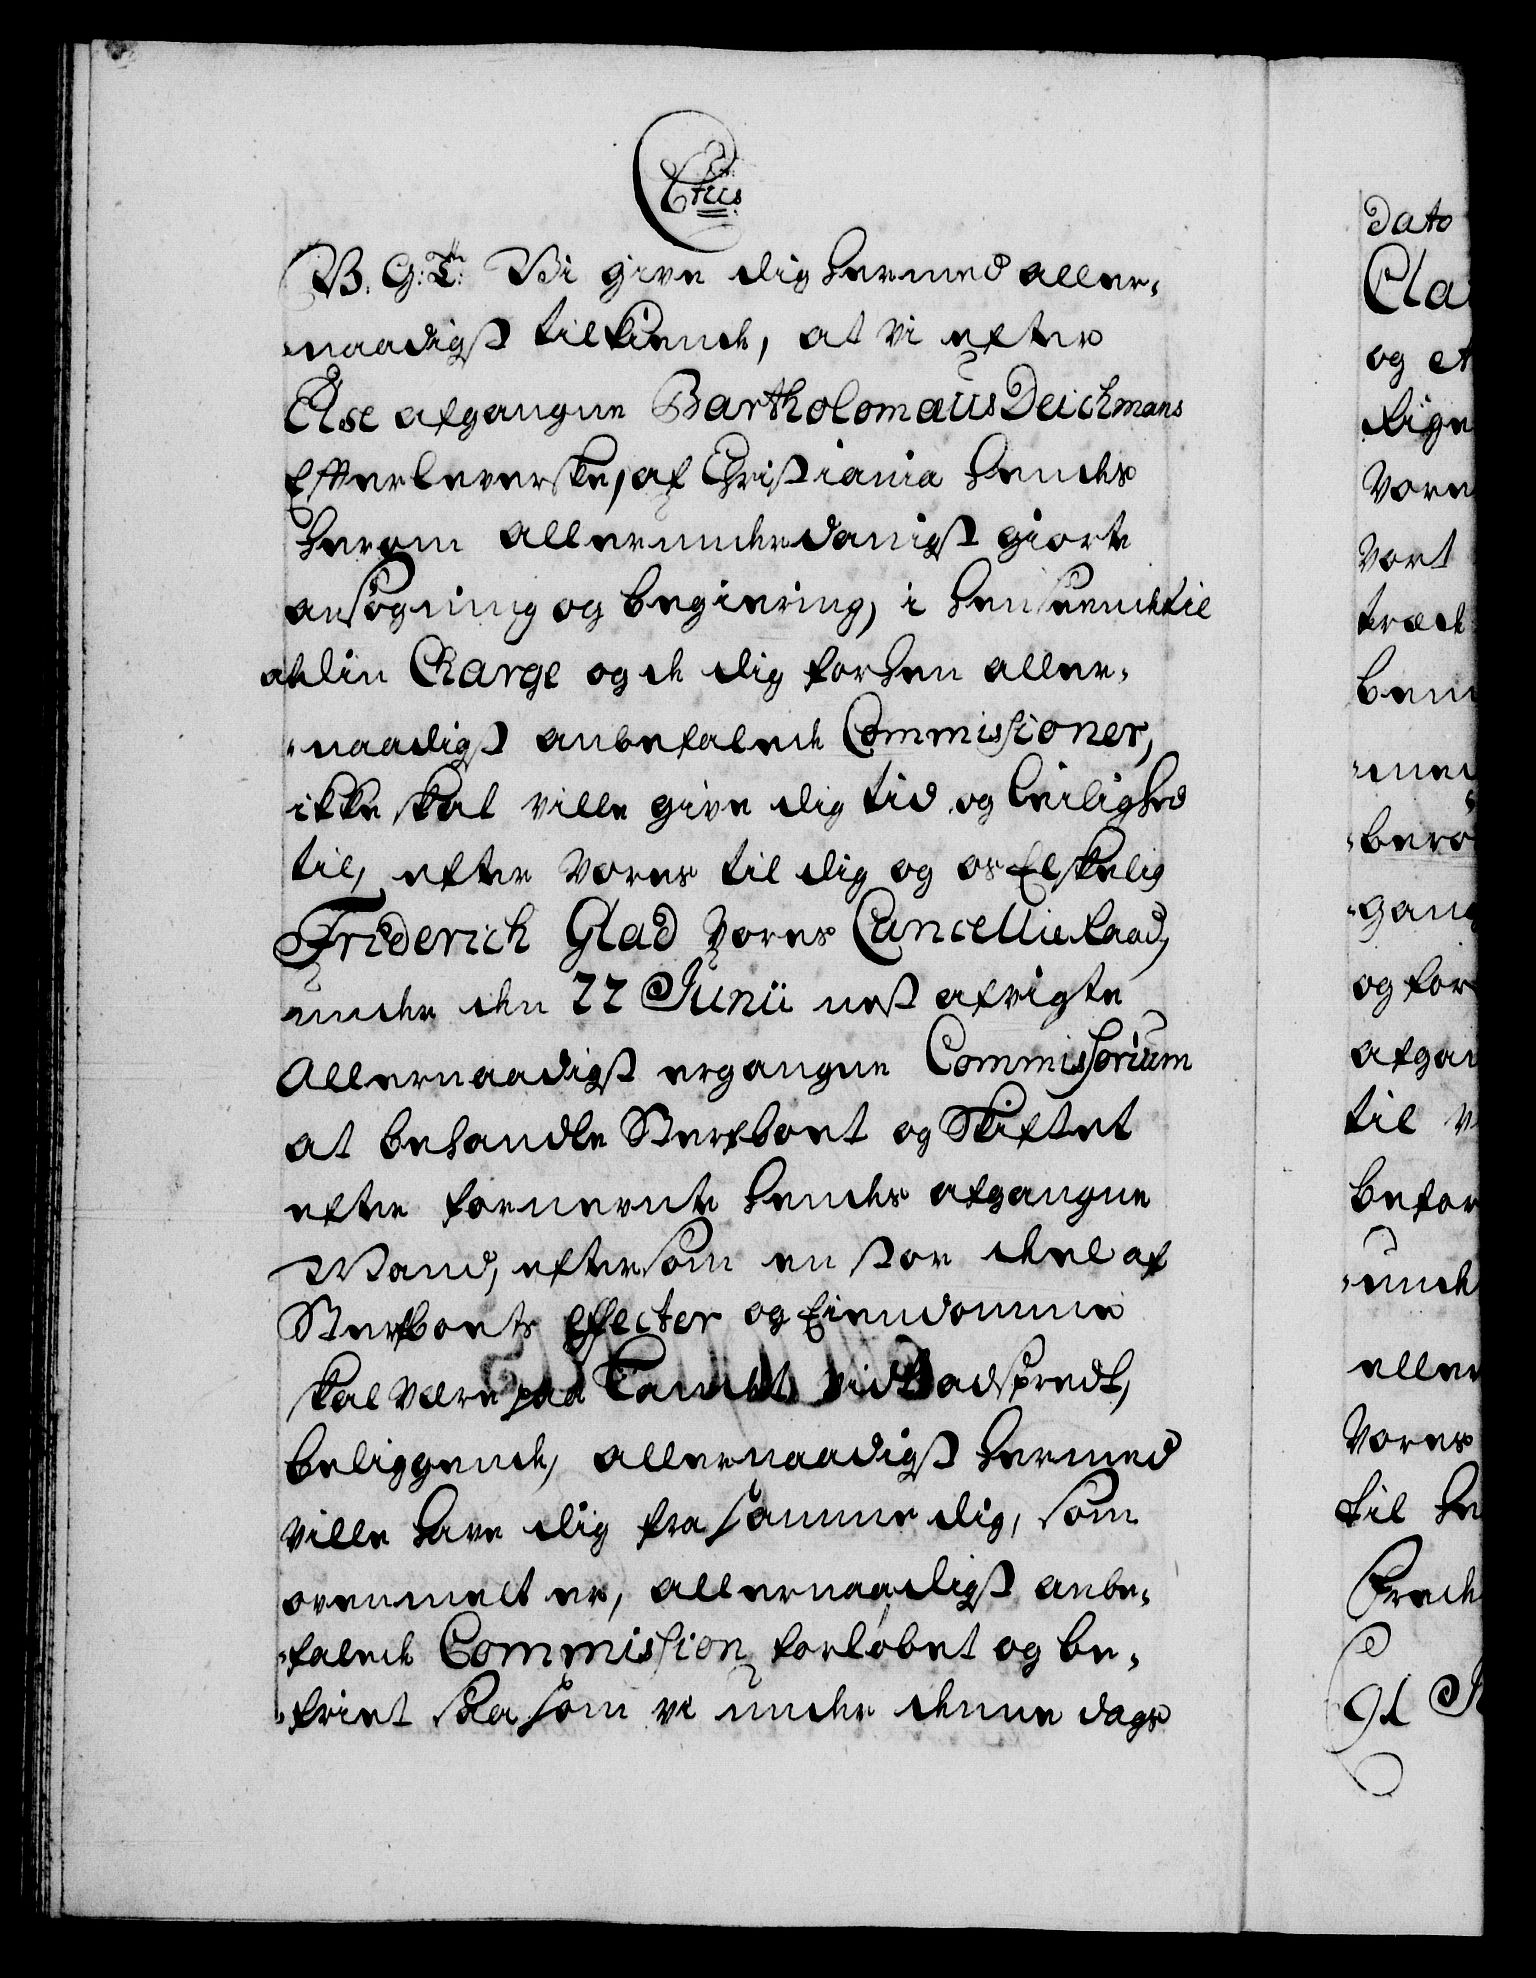 Ctus
B. G: T: Vi give dig hermed aller-
-naadigst tilkiende, at vi efter
Else afgangne Bartholomæus Deichmans
Efterleverske, af Christiania hendes
herom allerunderdanigst giorte
ansøgning og begiering, i henseende til
at din Charge og de dig forhen aller-
-naadigst anbefalede Commissioner,
ikke skal ville give dig tid og leilighed
til, efter vores til dig og os Elskelig
Friderich Glad vores Cancellieraad,
under den 22 Junii nest afvigte
Allernaadigst ergangne Commissorium
at behandle Sterfboet og Skiftet
efter fornevnte hendes afgangne
Mand, eftersom en stor deel af
Sterfboets Effecter og Eiendomme
skal være paa Landet vidt adspredt,
beliggende, allernaadigst hermed
ville have dig fra samme dig, som
ovenmelt er, allernaadigst anbe-
-falede Commission forløbet og be-
-friet saasom vi under denne dags
Dato
Cla
og et
lige
Vore
vort
træde
bem
-med
-berø
-gang
og for
afgan
til v
befor
-unde
eller
Vores
til he
Frede